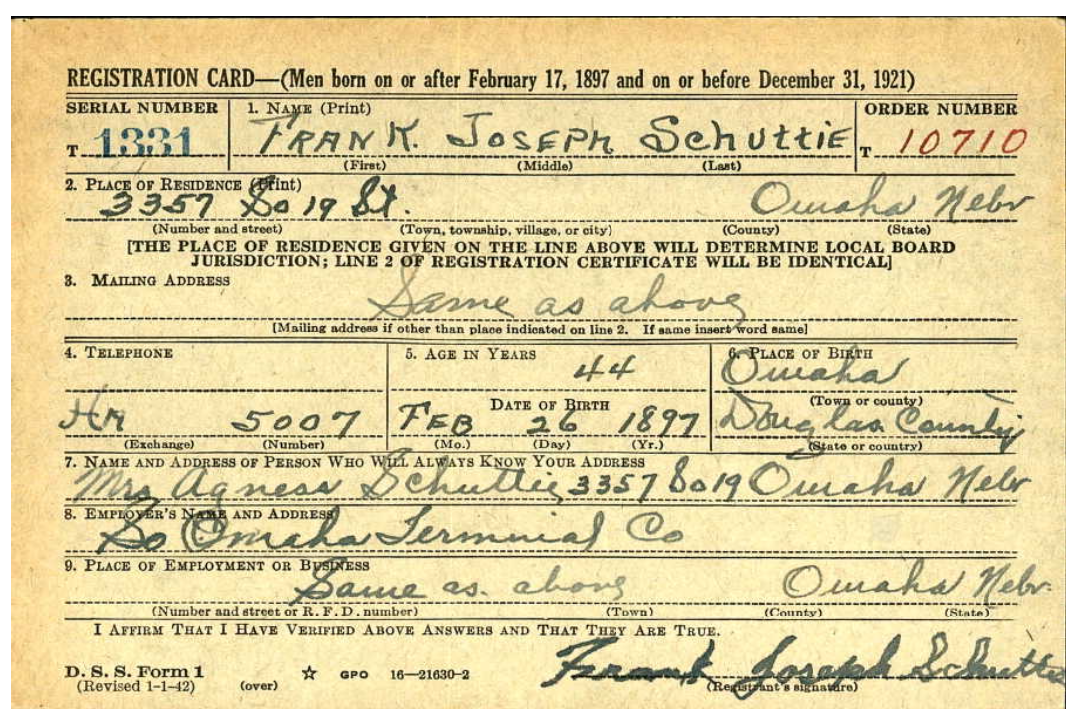 REGISTRATION CARD—(Men born on or after February 17, 1897 and on or before December 31, 1921)
SERIAL NUMBER 1. NAME (Print) ORDER NUMBER
T 1331 FRANK. JOSEPh SchuttiE T 10710
(First) (Middle) (Last)
2. PLACE OF RESIDENCE (Print)
3357 So 19 St. Omaha Nebr
(Number and street) (Town, township, village, or city) (County) (State)
[THE PLACE OF RESIDENCE GIVEN ON THE LINE ABOVE WILL DETERMINE LOCAL BOARD
JURISDICTION; LINE 2 OF REGISTRATION CERTIFICATE WILL BE IDENTICAL]
3. MAILING ADDRESS
Same as above
[Mailing address if other than place indicated on line 2. If same insert word same]
4. TELEPHONE 5. AGE IN YEARS 6. PLACE OF BIRTH
44 Omaha
DATE OF BIRTH (Town or county)
5007 FEB 26 1897 Douglas County
(Exchange) (Number) (Mo.) (Day) (Yr.) (State or country)
7. NAME AND ADDRESS OF PERSON WHO WILL ALWAYS KNOW YOUR ADDRESS
Mrs Agness Schuttie 3357 So 19 Omaha Nebr
8. EMPLOYER'S NAME AND ADDRESS
So Omaha Terminial Co
9. PLACE OF EMPLOYMENT OR BUSINESS
Same as. above Omaha Nebr.
(Number and street or R. F. D. number) (Town) (County) (State)
I AFFIRM THAT I HAVE VERIFIED ABOVE ANSWERS AND THAT THEY ARE TRUE.
D. S. S. Form 1 Frank Joseph Schuttie
(Revised 1-1-42) (over) ☆ GPO 16—21630-2 (Registrant's signature)